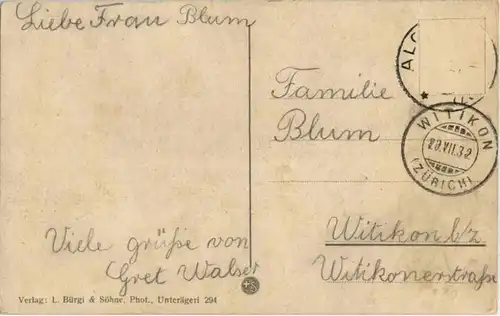 Liebe Frau Blum
Viele grüße von
Gret Walser
Verlag: L. Bürgi & Söhne, Phot., Unterägeri 294
Familie
Blum
Witikon b/z
Witikonerstraße
WITIKON
29.VII.32
(ZÜRICH)